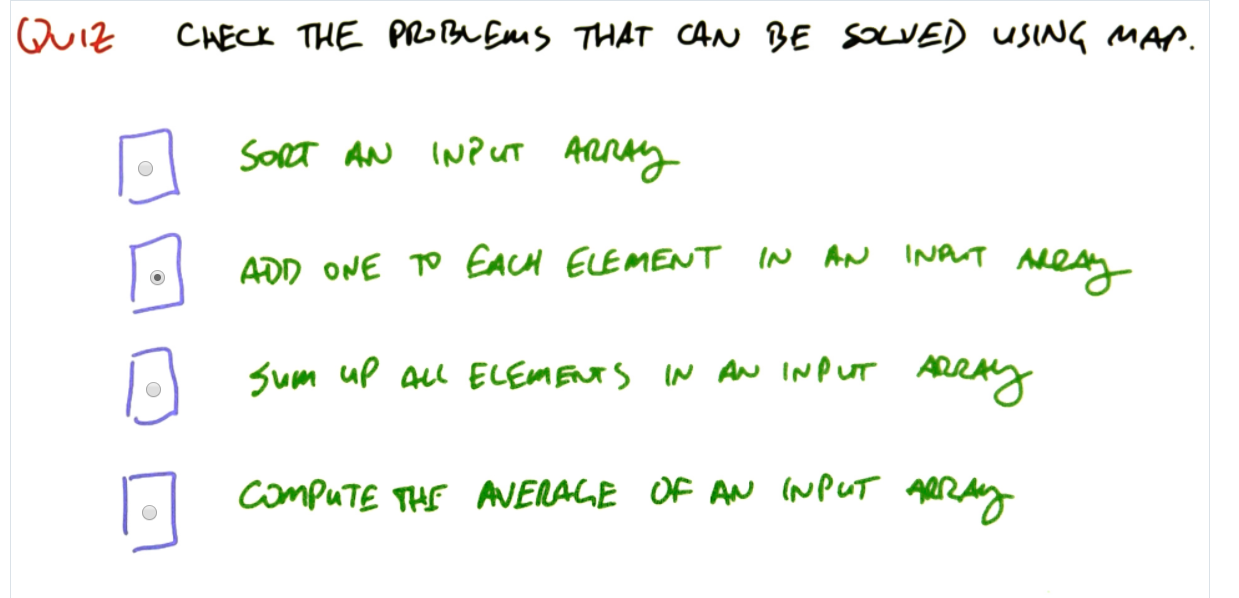 QUIZ CHECK THE PROBLEMS THAT CAN BE SOLVED USING MAP.
SORT AN INPUT ARRAY
ADD ONE TO EACH ELEMENT IN AN INPUT ARRAY
SUM UP ALL ELEMENTS IN AN INPUT ARRAY
COMPUTE THE AVERAGE OF AN INPUT ARRAY